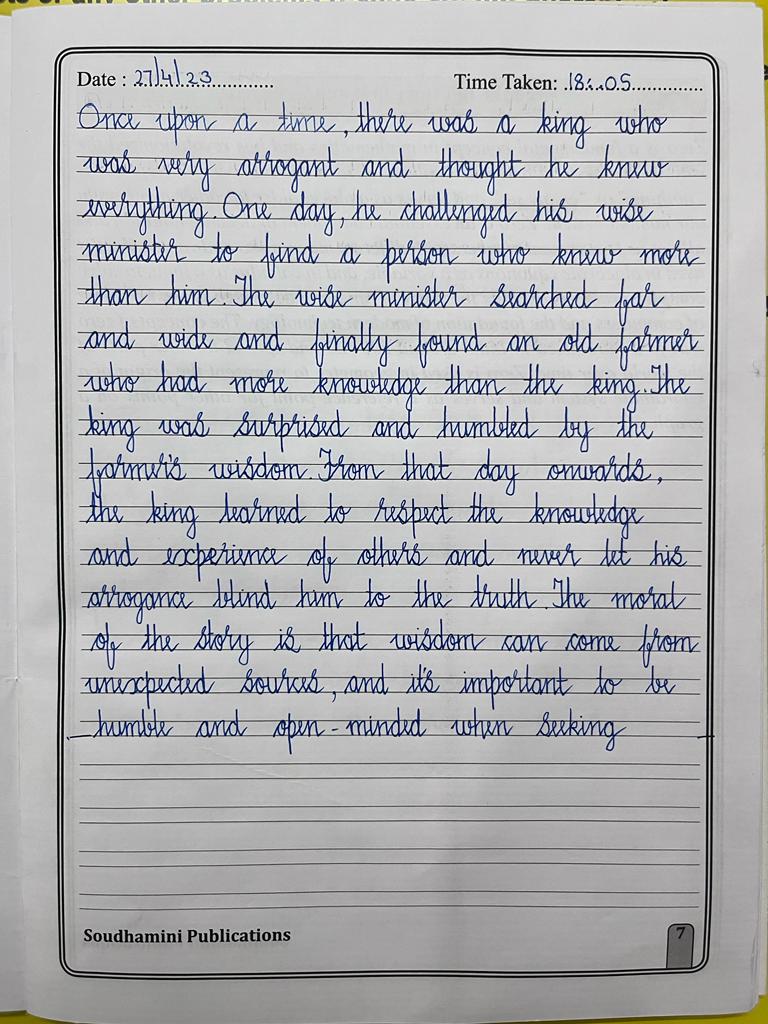 Date : 27/4/23 Time Taken: 18:05
Once upon a time, there was a king who
was very arrogant and thought he knew
everything. One day, he challenged his wise
minister to find a person who knew more
than him. The wise minister searched far
and wide and finally found an old farmer
who had more knowledge than the king. The
king was surprised and humbled by the
farmer's wisdom. From that day onwards,
the king learned to respect the knowledge
and experience of others and never let his
arrogance blind him to the truth. The moral
of the story is that wisdom can come from
unexpected sources, and it's important to be
humble and open-minded when seeking
Soudhamini Publications 7